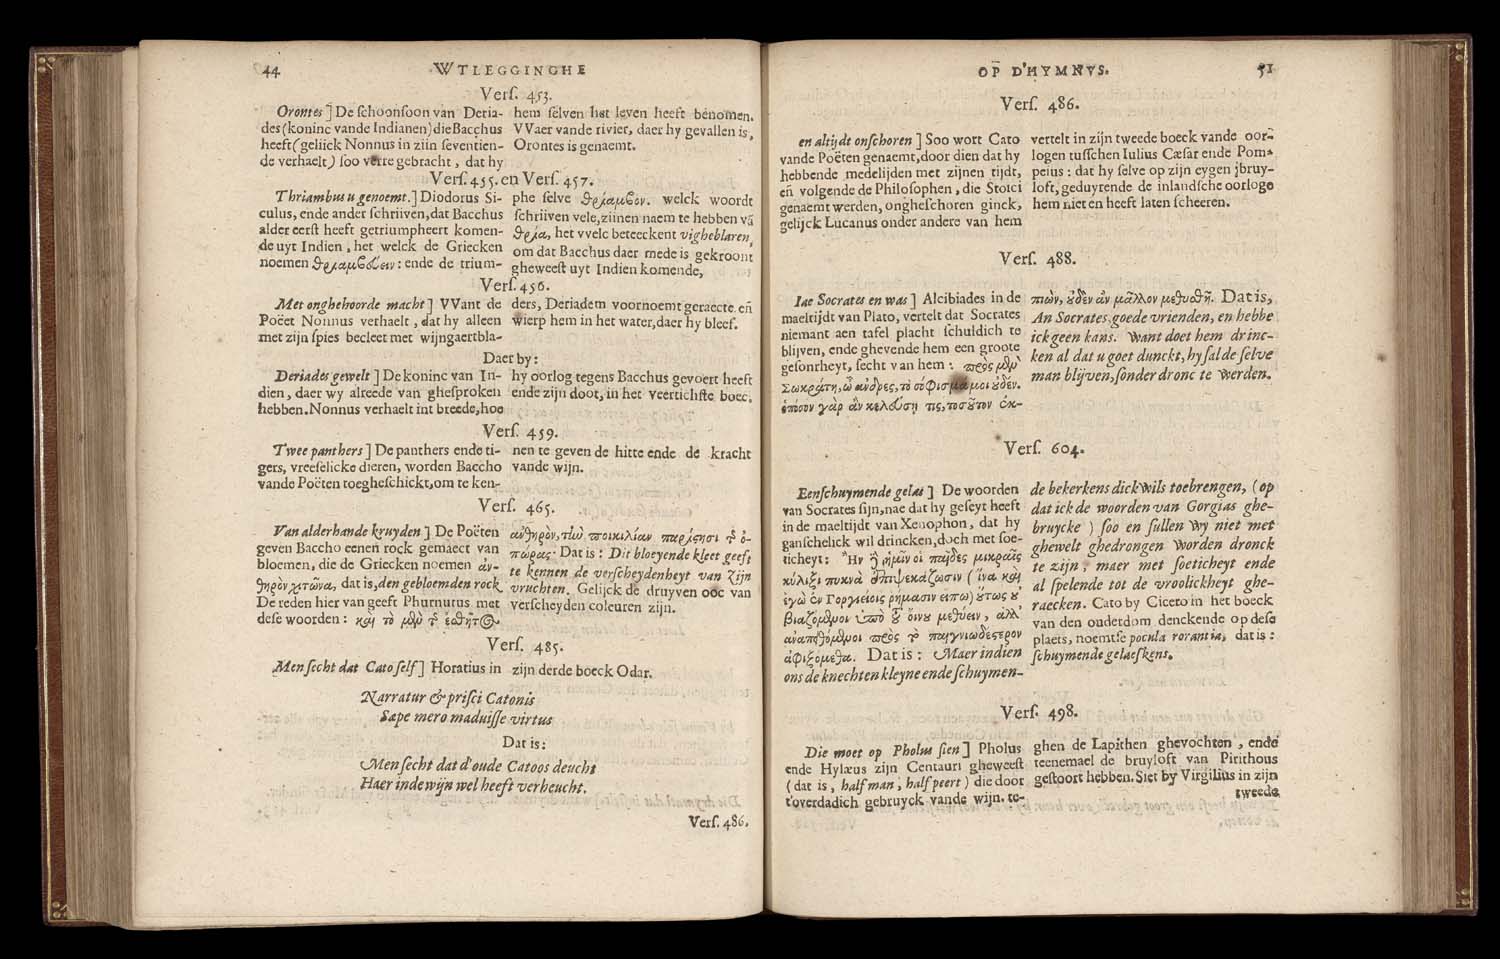 44
WTLEGGINGHE
Verſ. 453.
Orontes] De ſchoonſoon van Deria-
des (koninc vande Indianen) die Bacchus
heeft (geliick Nonnus in ziin ſeventien-
de verhaelt) ſoo verre gebracht, dat hy
hem ſelven het leven heeft benomen.
VVaer vande rivier, daer hy gevallen is,
Orontes is genaemt.
Verſ. 455. en Verſ. 457.
Thriambus u genoemt.] Diodorus Si-
culus, ende ander ſchriiven, dat Bacchus
alder eerſt heeft getriumpheert komen-
de uyt Indien, het welck de Griecken
noemen θριαμβεύειν: ende de trium-
phe ſelve θρίαμβον. welck woordt
ſchriiven vele, ziinen naem te hebben vā
θρία, het vvelc beteeckent vigheblaren,
om dat Bacchus daer mede is gekroont
gheweeſt uyt Indien komende,
Verſ. 456.
Met onghehoorde macht] VVant de
Poëet Nonnus verhaelt, dat hy alleen
met zijn ſpies becleet met wijngaertbla-
ders, Deriadem voornoemt geraecte eñ
wierp hem in het water, daer hy bleef.
Daer by:
Deriades gewelt] De koninc van In-
dien, daer wy alreede van gheſproken
hebben. Nonnus verhaelt int breede, hoe
hy oorlog tegens Bacchus gevoert heeft
ende zijn doot, in het veertichſte boec.
Verſ. 459.
Twee panthers] De panthers ende ti-
gers, vreeſelicke dieren, worden Baccho
vande Poëten toegheſchickt, om te ken-
nen te geven de hitte ende de kracht
vande wijn.
Verſ. 465.
Van alderhande kruyden] De Poëten
geven Baccho eenen rock gemaect van
bloemen, die de Griecken noemen ἀν-
θηρὸν χιτῶνα, dat is, den gebloemden rock
De reden hier van geeft Phurnutus met
deſe woorden: καὶ τὸ μὲν τ̃ ἐσθῆτ@
ἀνθηρὸν, τὼ ποικιλίαν παρίςησι τ̃ ὀ-
πώρας. Dat is: Dit bloeyende kleet geeft
te kennen de verſcheydenheyt van zijn
vruchten. Gelijck de druyven ooc van
verſcheyden coleuren zijn.
Verſ. 485.
Men ſecht dat Cato ſelf] Horatius in
zijn derde boeck Odar.
Narratur & priſci Catonis
Sæpe mero maduiſſe virtus
Dat is:
Men ſecht dat d'oude Catoos deucht
Haer inde wijn wel heeft verheucht.
Verſ. 486.
OP D'HYMNVS.
51
Verſ. 486.
en altijdt onſchoren] Soo wort Cato
vande Poëten genaemt, door dien dat hy
hebbende medelijden met zijnen tijdt,
eñ volgende de Philoſophen, die Stoici
genaemt werden, ongheſchoren ginck,
gelijck Lucanus onder andere van hem
vertelt in zijn tweede boeck vande oor-
logen tuſſchen Iulius Cæſar ende Pom-
peius: dat hy ſelve op zijn eygen jbruy-
loft, geduyrende de inlandſche oorloge
hem niet en heeft laten ſcheeren.
Verſ. 488.
Iae Socrates en was] Alcibiades in de
maeltijdt van Plato, vertelt dat Socrates
niemant aen tafel placht ſchuldich te
blijven, ende ghevende hem een groote
geſonrheyt, ſecht van hem: πρὸς μὲν
Σωκράτη, ὦ ἄνδρες, τὸ σόφισμά μοι ȣδέν.
ὁπόσον γὰρ ἂν κελεύση τις, τοσȣ̃τον ἐκ-
πιὼν, ȣδὲν ἂν μᾶλλον μεθυσθῆ. Dat is,
An Socrates goede vrienden, en hebbe
ick geen kans. Want doet hem drinc-
ken al dat u goet dunckt, hy ſal de ſelve
man blijven, ſonder dronc te werden.
Verſ. 604.
Een ſchuymende gelas] De woorden
van Socrates ſijn, nae dat hy geſeyt heeft
in de maeltijdt van Xenophon, dat hy
ganſchelick wil drincken, doch met ſoe-
ticheyt: Ἢν ἢ ἡμῖν οἱ παῖδες μικραῖς
κύλιξι πυκνὰ ἐπιψεκάζωσιν (ἵνα καὶ
ἐγὼ ἐν Γοργιείοις ῥήμασιν εἴπω) ȣτως ȣ̓
βιαζόμενοι ὑπὸ τȣ̃ οἴνου μεθύειν, ἀλλ'
ἀναπειθόμενοι πρὸς τὸ παιγνιωδέςερον
ἀφιξόμεθα. Dat is: Maer indien
ons de knechten kleyne ende ſchuymen-
de bekerkens dickwils toebrengen, (op
dat ick de woorden van Gorgias ghe-
bruycke) ſoo en ſullen wy niet met
ghewelt ghedrongen worden dronck
te zijn, maer met ſoeticheyt ende
al ſpelende tot de vroolickheyt ghe-
raecken. Cato by Cicero in het boeck
van den ouderdom denckende op deſe
plaets, noemtſe pocula rorantia, dat is:
ſchuymende gelaeſkens.
Verſ. 498.
Die moet op Pholus ſien] Pholus
ende Hylæus zijn Centauri gheweeſt
(dat is, half man, half peert) die door
t'overdadich gebruyck vande wijn. te-
ghen de Lapithen ghevochten, ende
teenemael de bruyloft van Pirithous
geſtoort hebben. Siet by Virgilius in zijn
tweede